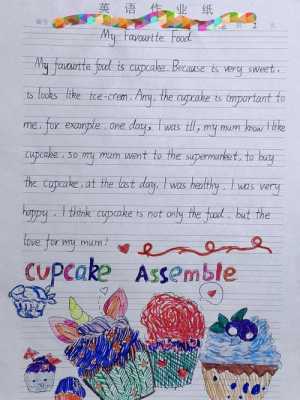 英语作业纸
My Favourite Food
My favourite food is cupcake. Because is very sweet.
is looks like ice-crem. Any, the cupcake is important to
me. for example. one day, I was ill, my mum know I like
cupcake. so my mum went to the supermarket, to buy
the cupcake, at the last day. I was healthy. I was very
happy. I think cupcake is not only the food. but the
love for my mum!
CUPCAKE ASSEMBLE